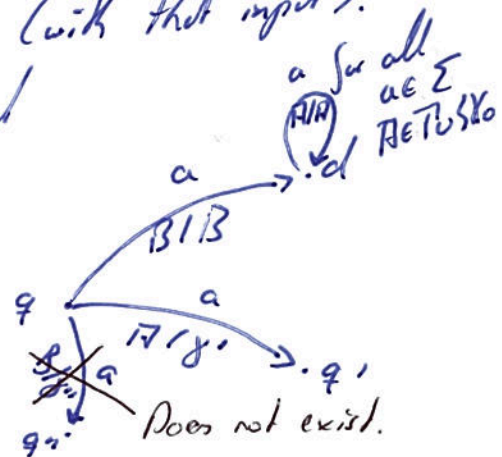 (with that input).
a for all
a ∈ Σ
A/A
A ∈ Γ ∪ {γ₀
d
a
B/B
q
a
A/γ'
q'
a
q''
Does not exist.